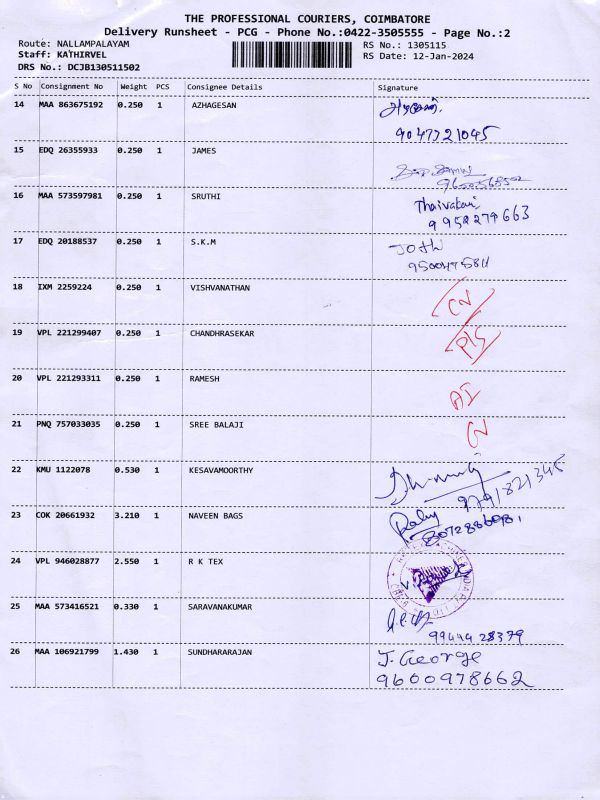 THE PROFESSIONAL COURIERS, COIMBATORE
Delivery Runsheet - PCG - Phone No.:0422-3505555 - Page No.:2
Route: NALLAMPALAYAM RS No.: 1305115
Staff: KATHIRVEL RS Date: 12-Jan-2024
DRS No.: DCJB130511502
S No Consignment No Weight PCS Consignee Details Signature
14 MAA 863675192 0.250 1 AZHAGESAN
9047721045
15 EDQ 26355933 0.250 1 JAMES
16 MAA 573597981 0.250 1 SRUTHI
9952279663
17 EDQ 20188537 0.250 1 S.K.M
9500475811
18 IXM 2259224 0.250 1 VISHVANATHAN
19 VPL 221299407 0.250 1 CHANDHRASEKAR
20 VPL 221293311 0.250 1 RAMESH
21 PNQ 757033035 0.250 1 SREE BALAJI
22 KMU 1122078 0.530 1 KESAVAMOORTHY
9791821345
23 COK 20661932 3.210 1 NAVEEN BAGS
24 VPL 946028877 2.550 1 R K TEX
25 MAA 573416521 0.330 1 SARAVANAKUMAR
99444 28379
26 MAA 106921799 1.430 1 SUNDHARARAJAN J. George
9600978662